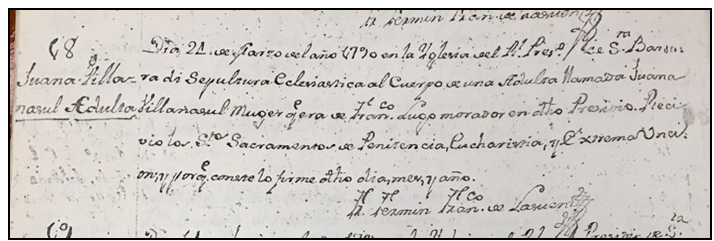 Fr. Fermin Fran.co de Lasuen
68
Juana Villa-
nasul Adulta
Dia 21 de Marzo de el año 1790 en la Yglesia de el Rl. Presº. de Sta. Barba-
ra di Sepultura Eclesiastica al Cuerpo de una Adulta llamada Juana
Villanasul Muger q.e era de Fran.co Lugo morador en dho Presidio. Reci-
vio los Stos. Sacramentos de Penitencia, Eucharistia, y Extrema Unci-
on, y porq.e conste lo firme dho dia, mes, y año.
Fr. Fermin Fran.co de Lasuen